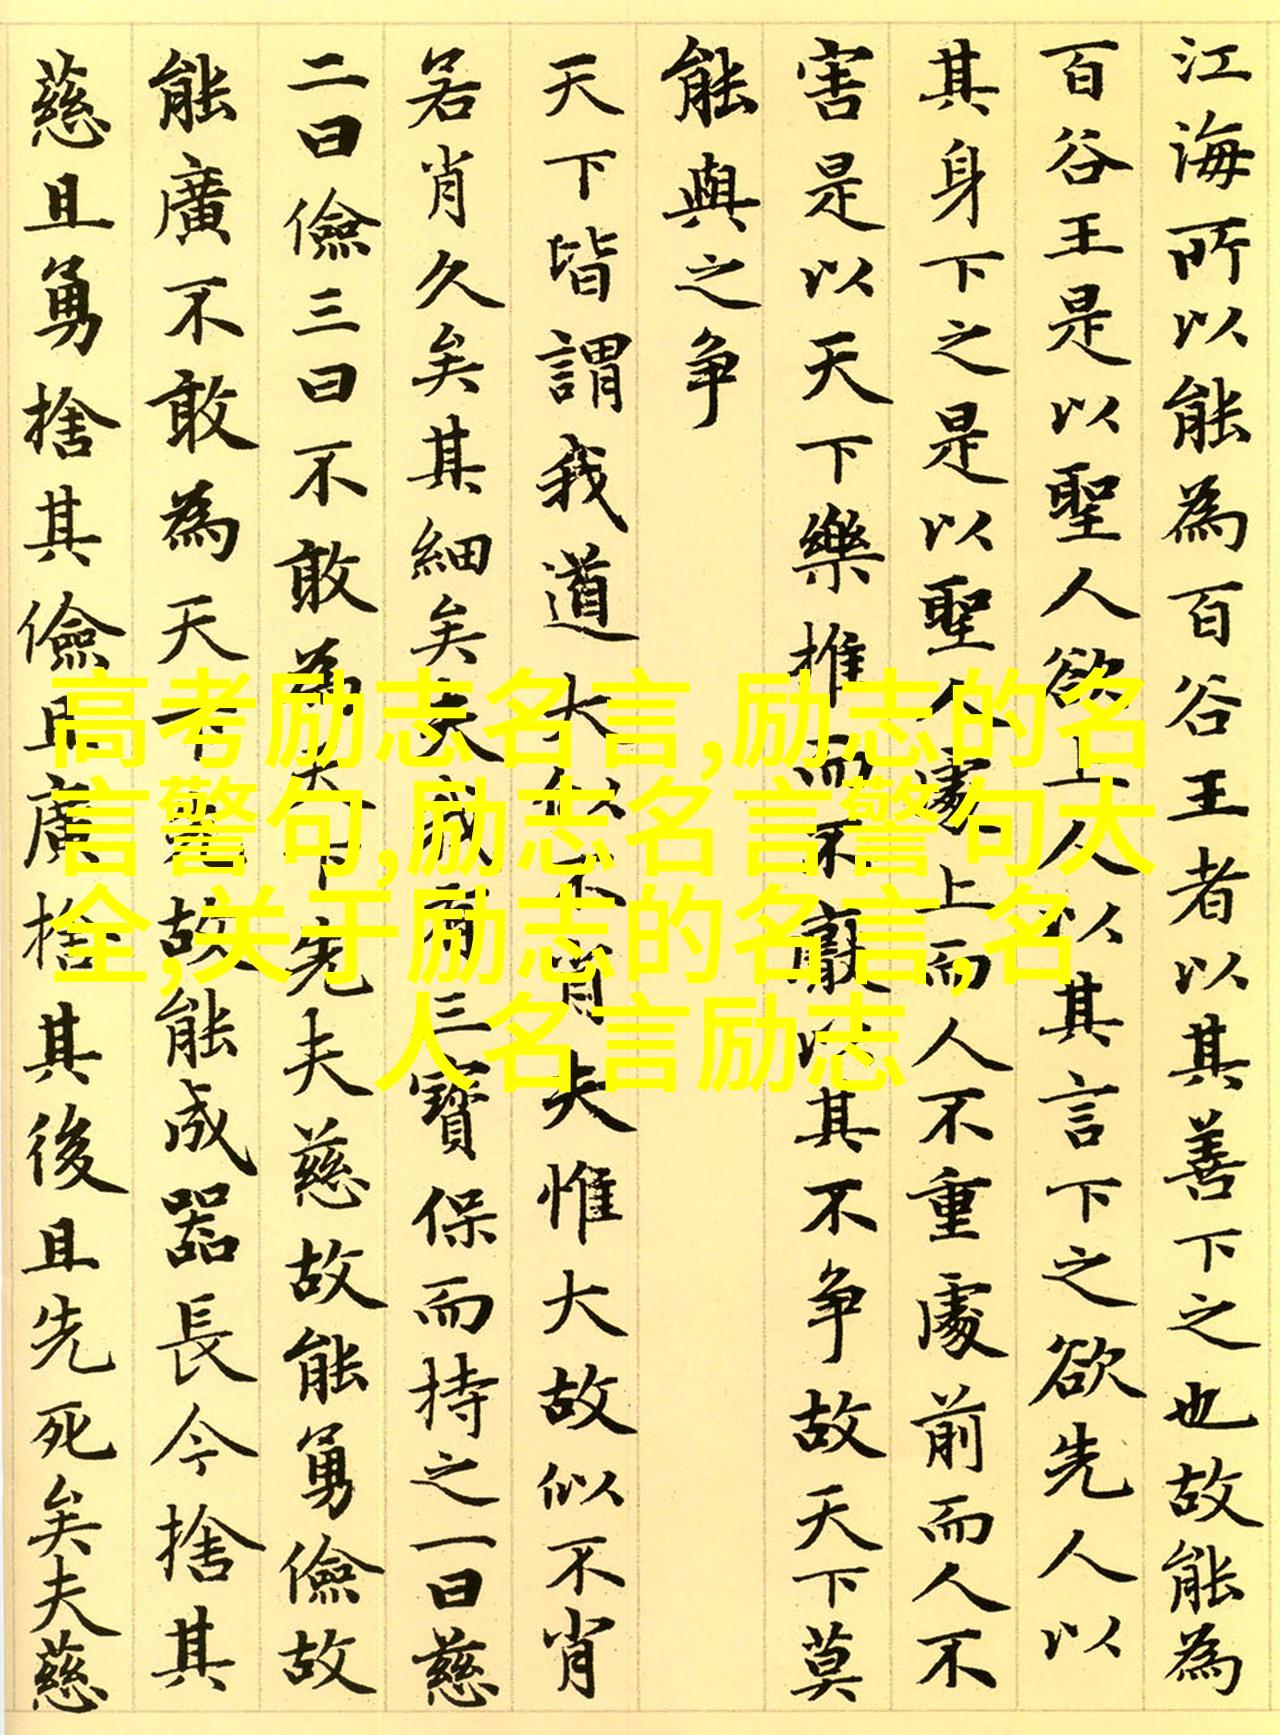 江海所以能為百谷王者以其善下之也故能為
百谷王是以聖人欲上人以其言下之欲先人以
其身下之是以聖人處上而人不重處前而人不
害是以天下樂推而不厭以其不争故天下莫
能與之争
天下皆謂我道大似不肖夫惟大故似不肖
若肖久矣其細矣夫我有三寶保而持之一曰慈
二曰儉三曰不敢為天下先夫慈故能勇儉故
能廣不敢為天下先故能成器長今捨其
慈且勇捨其儉且廣捨其後且先死矣夫慈
高考励志名言,励志的名
言警句,励志名言警句大
全,关于励志的名言,名
人名言励志